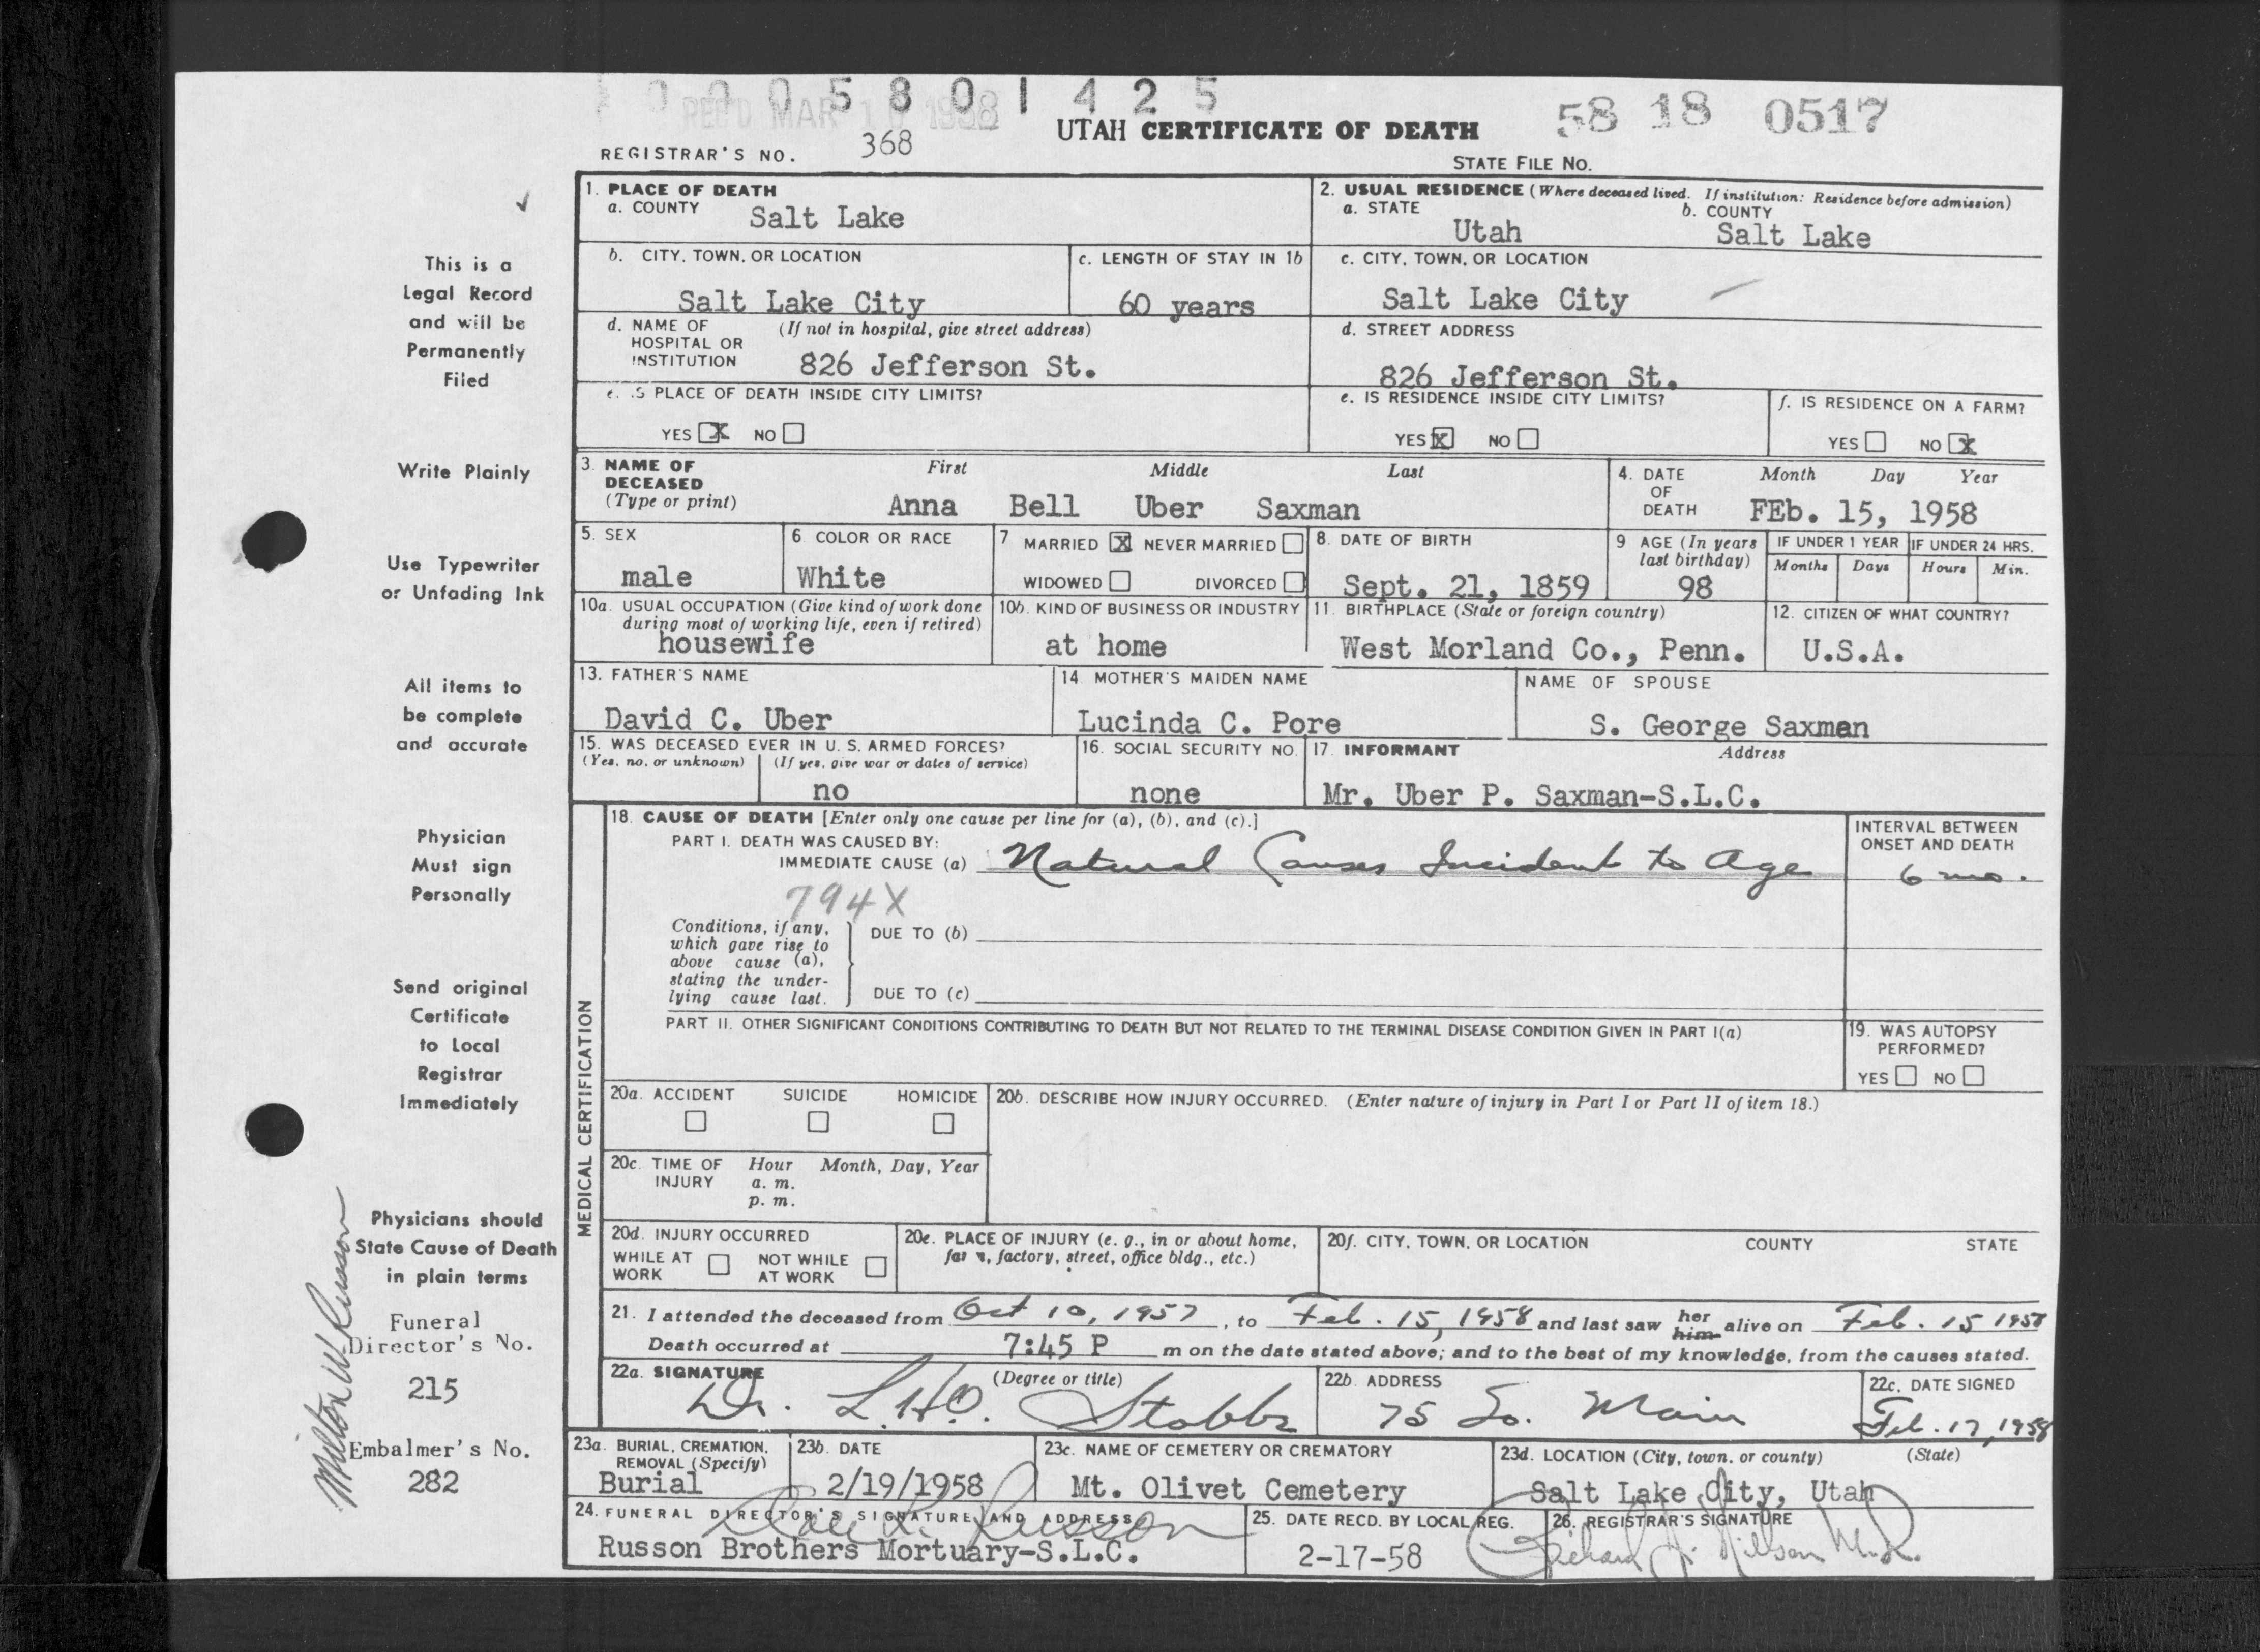 0 0 0 5 8 0 1 4 2 5
REC'D MAR 1 1958
58 18 0517
UTAH CERTIFICATE OF DEATH
REGISTRAR'S NO. 368
STATE FILE NO.
1. PLACE OF DEATH
a. COUNTY Salt Lake
2. USUAL RESIDENCE (Where deceased lived. If institution: Residence before admission)
a. STATE Utah
b. COUNTY Salt Lake
b. CITY, TOWN, OR LOCATION
Salt Lake City
c. LENGTH OF STAY IN 1b
60 years
c. CITY, TOWN, OR LOCATION
Salt Lake City
d. NAME OF HOSPITAL OR INSTITUTION (If not in hospital, give street address)
826 Jefferson St.
d. STREET ADDRESS
826 Jefferson St.
e. IS PLACE OF DEATH INSIDE CITY LIMITS?
YES X NO
e. IS RESIDENCE INSIDE CITY LIMITS?
YES X NO
f. IS RESIDENCE ON A FARM?
YES NO X
3. NAME OF DECEASED (Type or print)
First Middle Last
Anna Bell Uber Saxman
4. DATE OF DEATH Month Day Year
FEb. 15, 1958
5. SEX
male
6 COLOR OR RACE
White
7 MARRIED X NEVER MARRIED
WIDOWED DIVORCED
8. DATE OF BIRTH
Sept. 21, 1859
9 AGE (In years last birthday)
98
IF UNDER 1 YEAR
Months Days
IF UNDER 24 HRS.
Hours Min.
10a. USUAL OCCUPATION (Give kind of work done during most of working life, even if retired)
housewife
10b. KIND OF BUSINESS OR INDUSTRY
at home
11. BIRTHPLACE (State or foreign country)
West Morland Co., Penn.
12. CITIZEN OF WHAT COUNTRY?
U.S.A.
13. FATHER'S NAME
David C. Uber
14. MOTHER'S MAIDEN NAME
Lucinda C. Pore
NAME OF SPOUSE
S. George Saxman
15. WAS DECEASED EVER IN U. S. ARMED FORCES?
(Yes, no, or unknown) (If yes, give war or dates of service)
no
16. SOCIAL SECURITY NO.
none
17. INFORMANT Address
Mr. Uber P. Saxman-S.L.C.
MEDICAL CERTIFICATION
18. CAUSE OF DEATH [Enter only one cause per line for (a), (b), and (c).]
PART I. DEATH WAS CAUSED BY:
IMMEDIATE CAUSE (a) Natural Causes Incident to Age
INTERVAL BETWEEN ONSET AND DEATH
6 mo.
794X
Conditions, if any,
which gave rise to
above cause (a),
stating the under-
lying cause last.
DUE TO (b)
DUE TO (c)
PART II. OTHER SIGNIFICANT CONDITIONS CONTRIBUTING TO DEATH BUT NOT RELATED TO THE TERMINAL DISEASE CONDITION GIVEN IN PART I(a)
19. WAS AUTOPSY PERFORMED?
YES NO
20a. ACCIDENT SUICIDE HOMICIDE
20b. DESCRIBE HOW INJURY OCCURRED. (Enter nature of injury in Part I or Part II of item 18.)
20c. TIME OF INJURY Hour Month, Day, Year
a. m.
p. m.
20d. INJURY OCCURRED
WHILE AT WORK NOT WHILE AT WORK
20e. PLACE OF INJURY (e. g., in or about home, farm, factory, street, office bldg., etc.)
20f. CITY, TOWN, OR LOCATION COUNTY STATE
21. I attended the deceased from Oct 10, 1957, to Feb. 15, 1958 and last saw her him alive on Feb. 15 1958
Death occurred at 7:45 P m on the date stated above; and to the best of my knowledge, from the causes stated.
22a. SIGNATURE (Degree or title)
Dr. L.H.O. Stobbe
22b. ADDRESS
75 So. Main
22c. DATE SIGNED
Feb. 17, 1958
23a. BURIAL, CREMATION, REMOVAL (Specify)
Burial
23b. DATE
2/19/1958
23c. NAME OF CEMETERY OR CREMATORY
Mt. Olivet Cemetery
23d. LOCATION (City, town, or county) (State)
Salt Lake City, Utah
24. FUNERAL DIRECTOR'S SIGNATURE AND ADDRESS
Russon
Russon Brothers Mortuary-S.L.C.
25. DATE RECD. BY LOCAL REG.
2-17-58
26. REGISTRAR'S SIGNATURE
Richard J. Nilson M.D.
This is a
Legal Record
and will be
Permanently
Filed
Write Plainly
Use Typewriter
or Unfading Ink
All items to
be complete
and accurate
Physician
Must sign
Personally
Send original
Certificate
to Local
Registrar
Immediately
Physicians should
State Cause of Death
in plain terms
Funeral
Director's No.
215
Embalmer's No.
282
Milton W. Russon